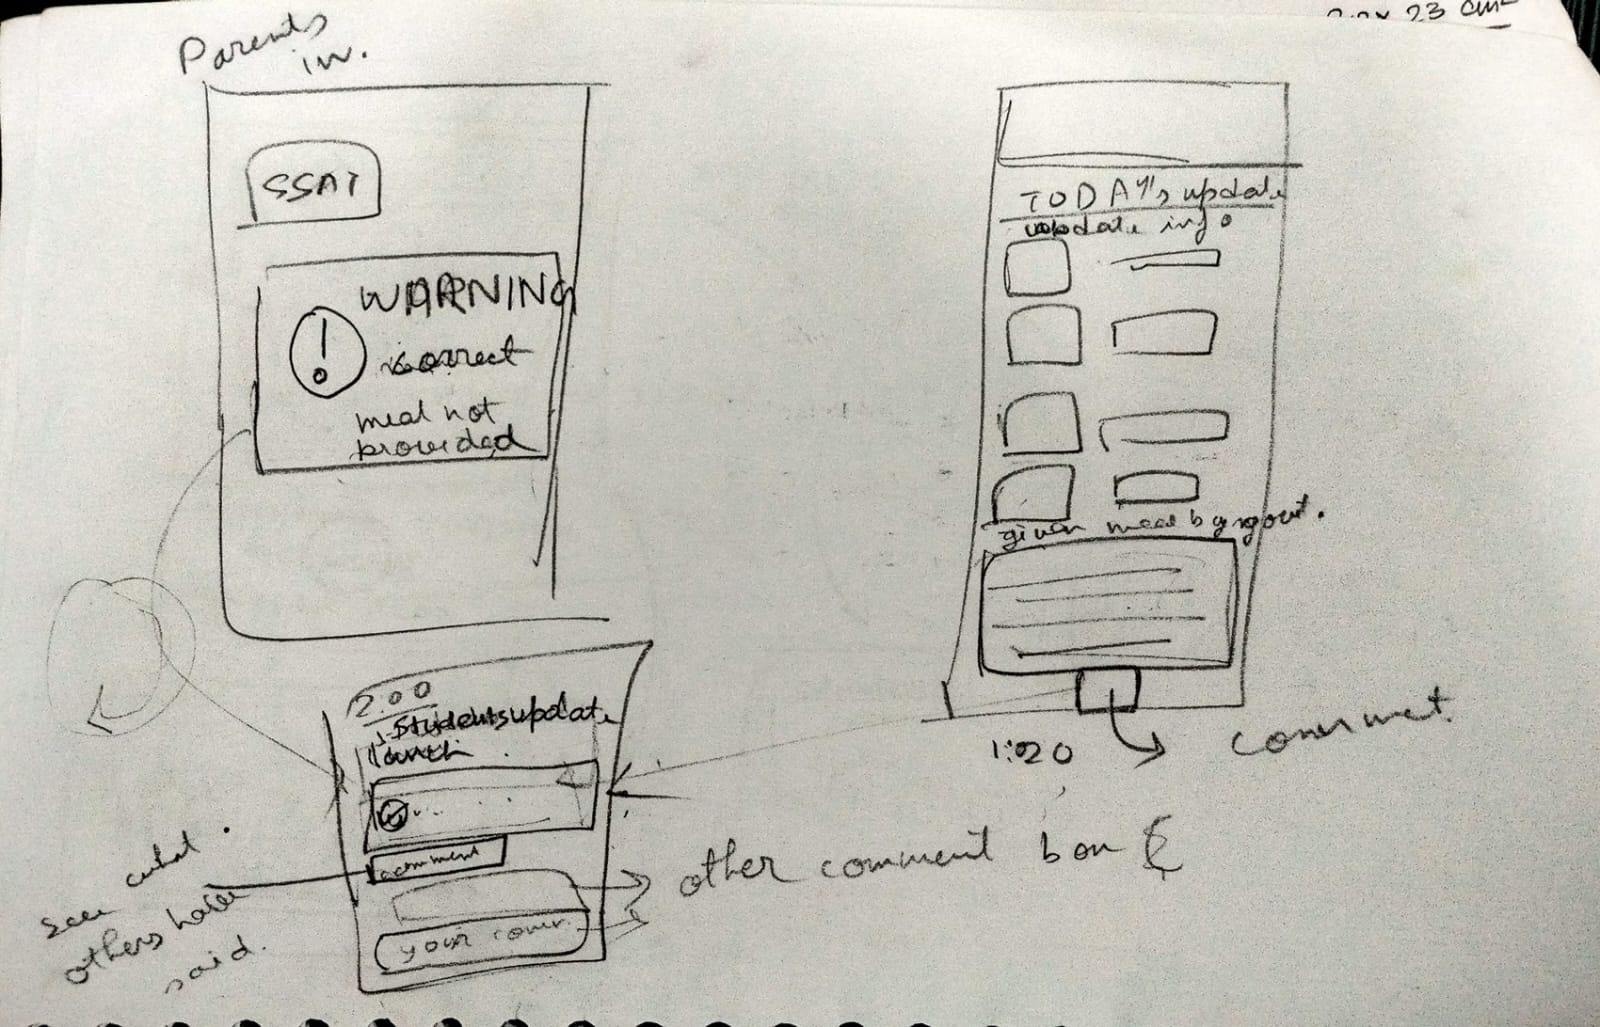 Parents
in.
SSAT
WARNING
correct
meal not
provided
23 cm²
TODAY's update
update info
given meal by govt.
1:20
comment
2.00
Students update
lunch
comment
your comm.
other comment box
see what
others have
said.